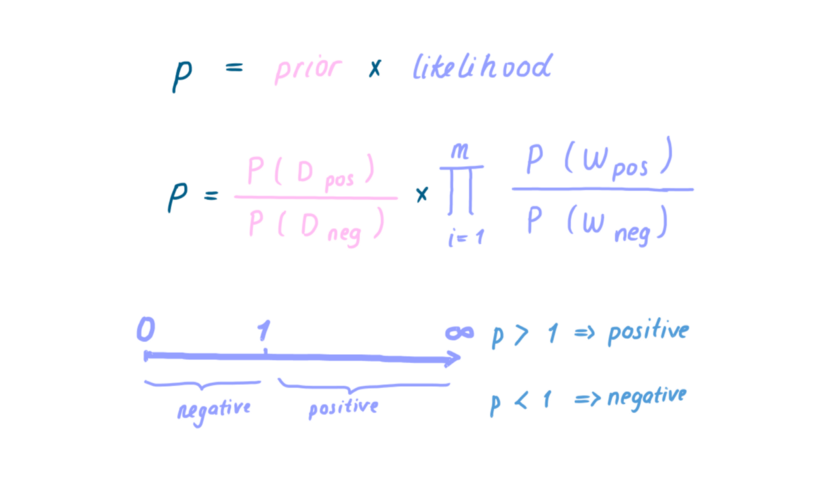 p = prior x likelihood
P = P(D pos) / P(D neg) x ∏ m i=1 P(W pos) / P(W neg)
0 1 ∞
negative positive
p > 1 => positive
p < 1 => negative